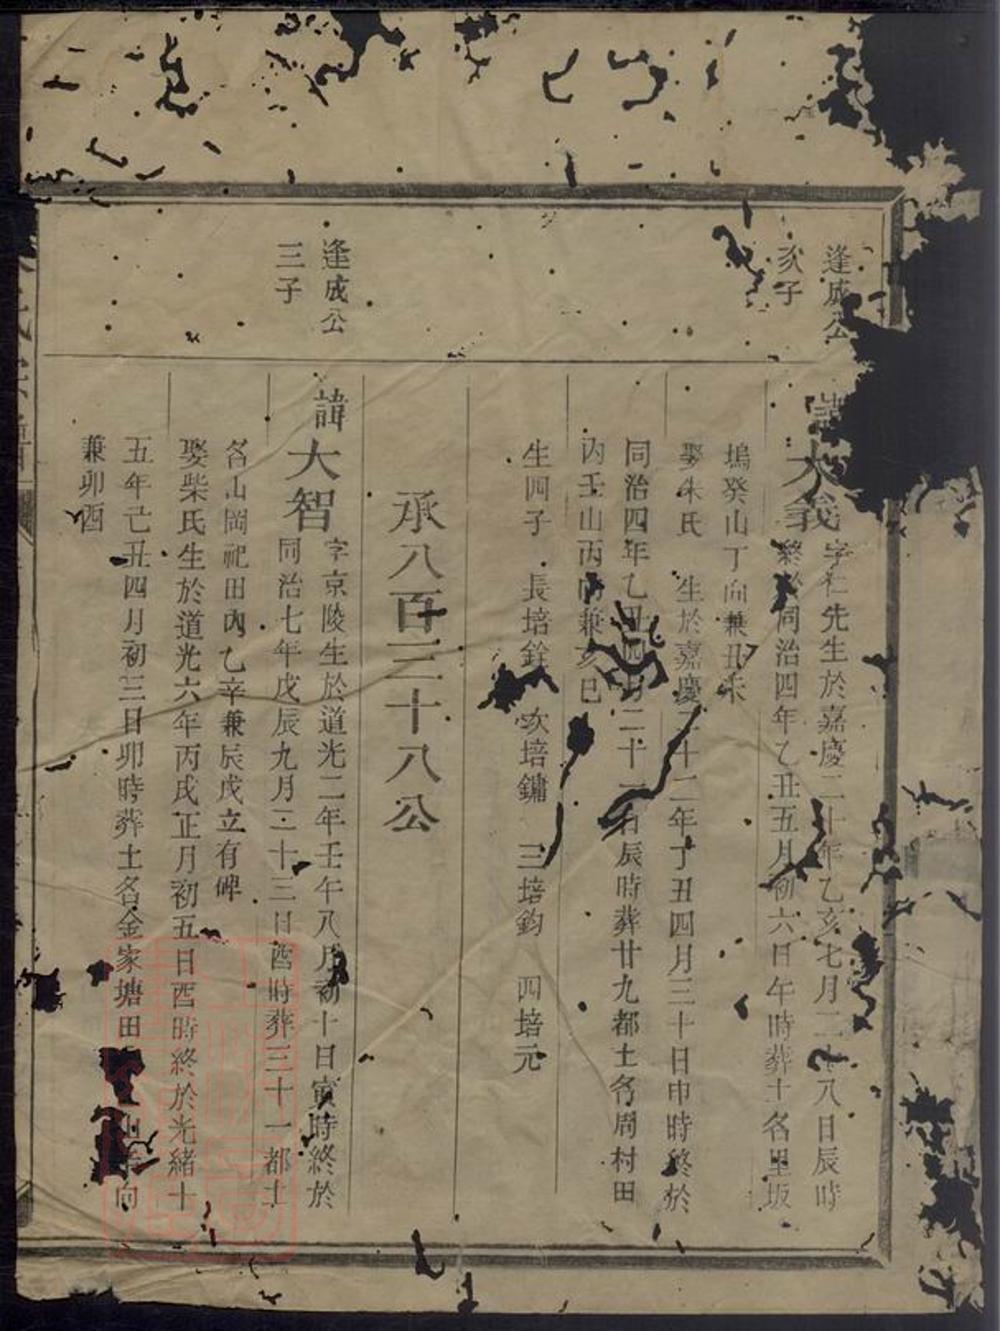 逢成公
次子
諱大義
字仁先生於嘉慶二十年乙亥七月二十八日辰時
終於同治四年乙丑五月初六日午時葬土名里坂
塢癸山丁向兼丑未
娶朱氏 生於嘉慶二十二年丁丑四月三十日申時終於
同治四年乙丑四月二十一日辰時葬廿九都土名周村田
內壬山丙向兼亥巳
生四子 長培銓 次培鏞 三培鈞 四培元
承八百三十八公
逢成公
三子
諱大智
字京陵生於道光二年壬午八月初十日寅時終於
同治七年戊辰九月二十三日酉時葬三十一都土
名山岡祀田內乙辛兼辰戌立有碑
娶柴氏生於道光六年丙戌正月初五日酉時終於光緒十
五年己丑四月初三日卯時葬土名金家塘田山向
兼卯酉